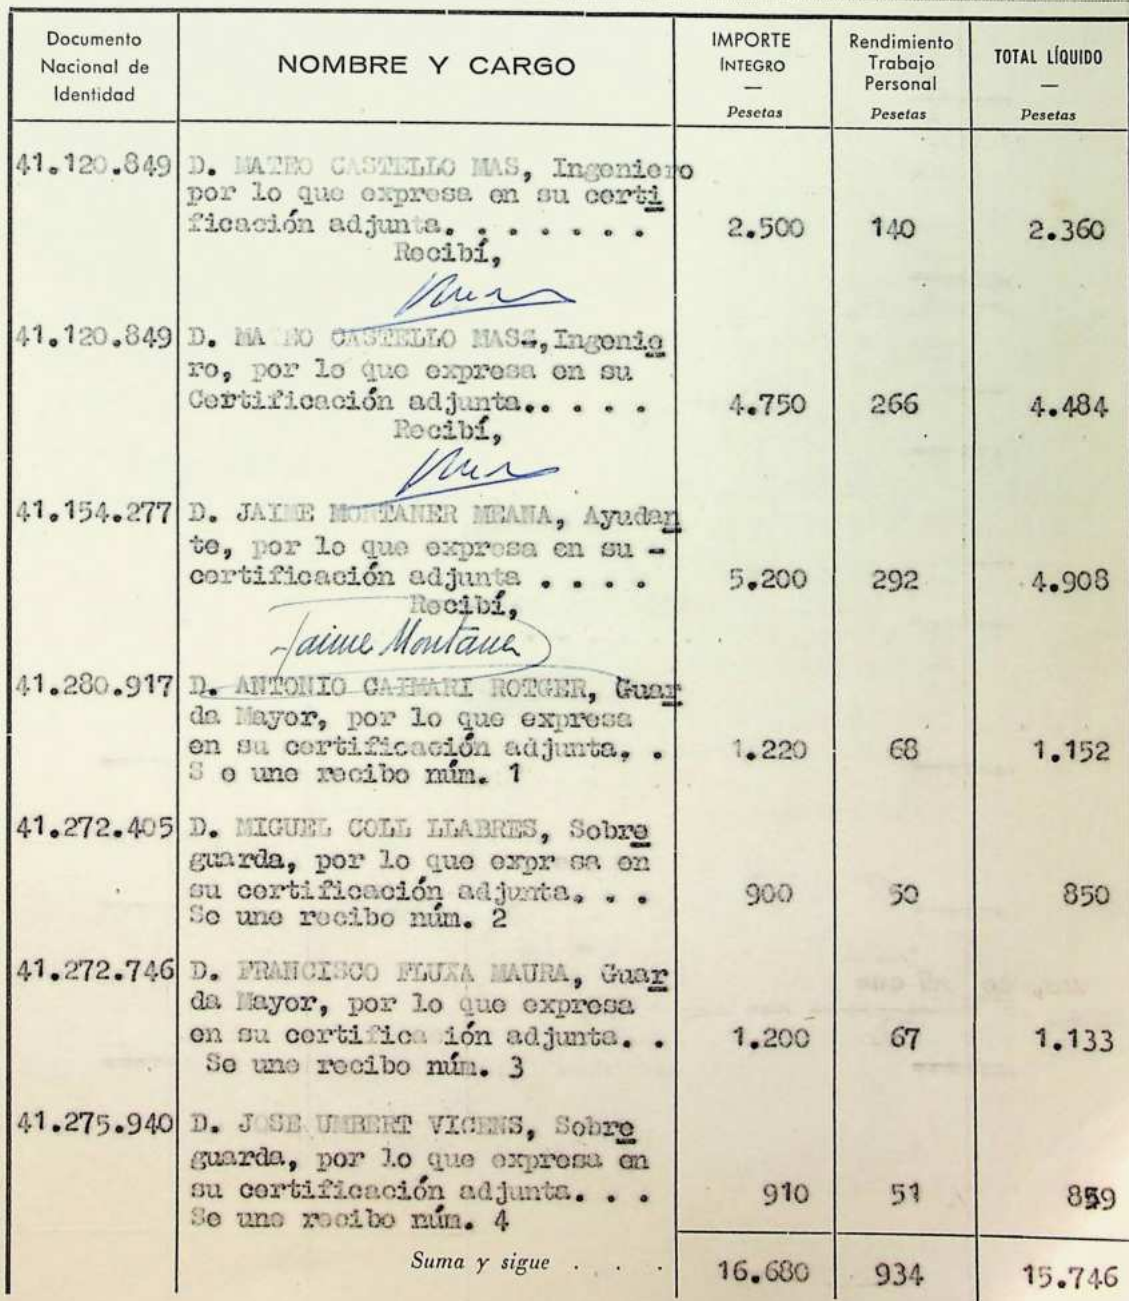 Documento
Nacional de
Identidad
NOMBRE Y CARGO
IMPORTE
INTEGRO
—
Pesetas
Rendimiento
Trabajo
Personal
Pesetas
TOTAL LÍQUIDO
—
Pesetas
41.120.849 D. MATEO CASTELLO MAS, Ingeniero
por lo que expresa en su certi
ficación adjunta. . . . . . . 2.500 140 2.360
Recibí,
41.120.849 D. MA EO CASTELLO MASS, Ingenie
ro, por lo que expresa en su
Certificación adjunta.. . . . 4.750 266 4.484
Recibí,
41.154.277 D. JAIME MONTANER MEANA, Ayudan
te, por lo que expresa en su -
certificación adjunta . . . . 5.200 292 4.908
Recibí,
Jaime Montaner
41.280.917 D. ANTONIO CAIMARI ROTGER, Guar
da Mayor, por lo que expresa
en su certificación adjunta. . 1.220 68 1.152
S e une recibo núm. 1
41.272.405 D. MIGUEL COLL LLABRES, Sobre
guarda, por lo que expr sa en
su certificación adjunta. . . 900 50 850
Se une recibo núm. 2
41.272.746 D. FRANCISCO FLUXA MAURA, Guar
da Mayor, por lo que expresa
en su certifica ión adjunta. . 1.200 67 1.133
Se une recibo núm. 3
41.275.940 D. JOSE UMBERT VICENS, Sobre
guarda, por lo que expresa en
su certificación adjunta. . . 910 51 859
Se une recibo núm. 4
Suma y sigue . . . 16.680 934 15.746